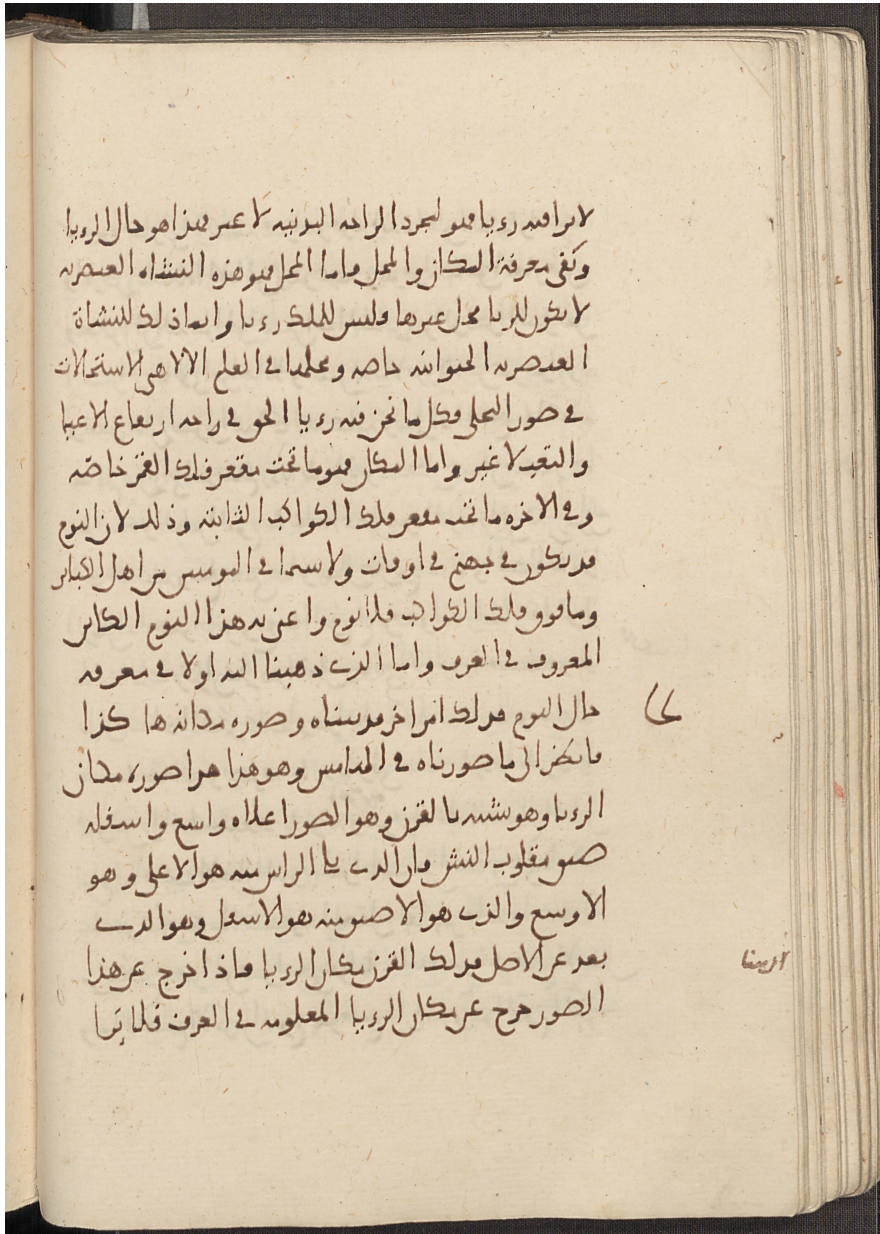 لا يرا فيه رءيا فهو لمجرد الراحة البدنية لا غير فهذا هو حال الرءيا
وبقى معرفة المكان والمحل واما المحل فهو هذه النشاة العنصرية
لا يكون للريا محل غيرها فليس للملك رءيا وانما ذلك للنشاة
العنصرية الحيوانية خاصة ومحلها في العلم الالاهي الاستحالات
في صور التجلي فكل ما نحن فيه رءيا الحق في راحة ارتفاع الاعيا
والتعب لا غير واما المكان فهو ما تحت مقعر فلك القمر خاصة
وفي الاخرة ما تحت مقعر فلك الكواكب الثابتة وذلك لان النوم
قد يكون في جهنم في اوقات ولا سيما في المومنين من اهل الكباير
وما فوق فلك الكواكب فلا نوم واعنى به هذا النوم الكاين
المعروف في العرف واما الذى ذهبنا اليه اولا في معرفة
حال النوم فذلك امر اخر قد بيناه وصورة مكانه ها كذا
فانظر الى ما صورناه في الهامش وهو هذا هذا صورة مكان
الرءيا وهو يشبه بالقرن وهو الصور اعلاه واسع واسفله
ضيق مقلوب النش فان الذى يلي الراس منه هو الاعلى وهو
الاوسع والذى هو الاضيق منه هو الاسفل وهو الذى
بعد عن الاصل فذلك القرن مكان الرءيا فاذا خرج عن هذا
الصور خرج عن مكان الرءيا المعلومة في العرف فلا يرا